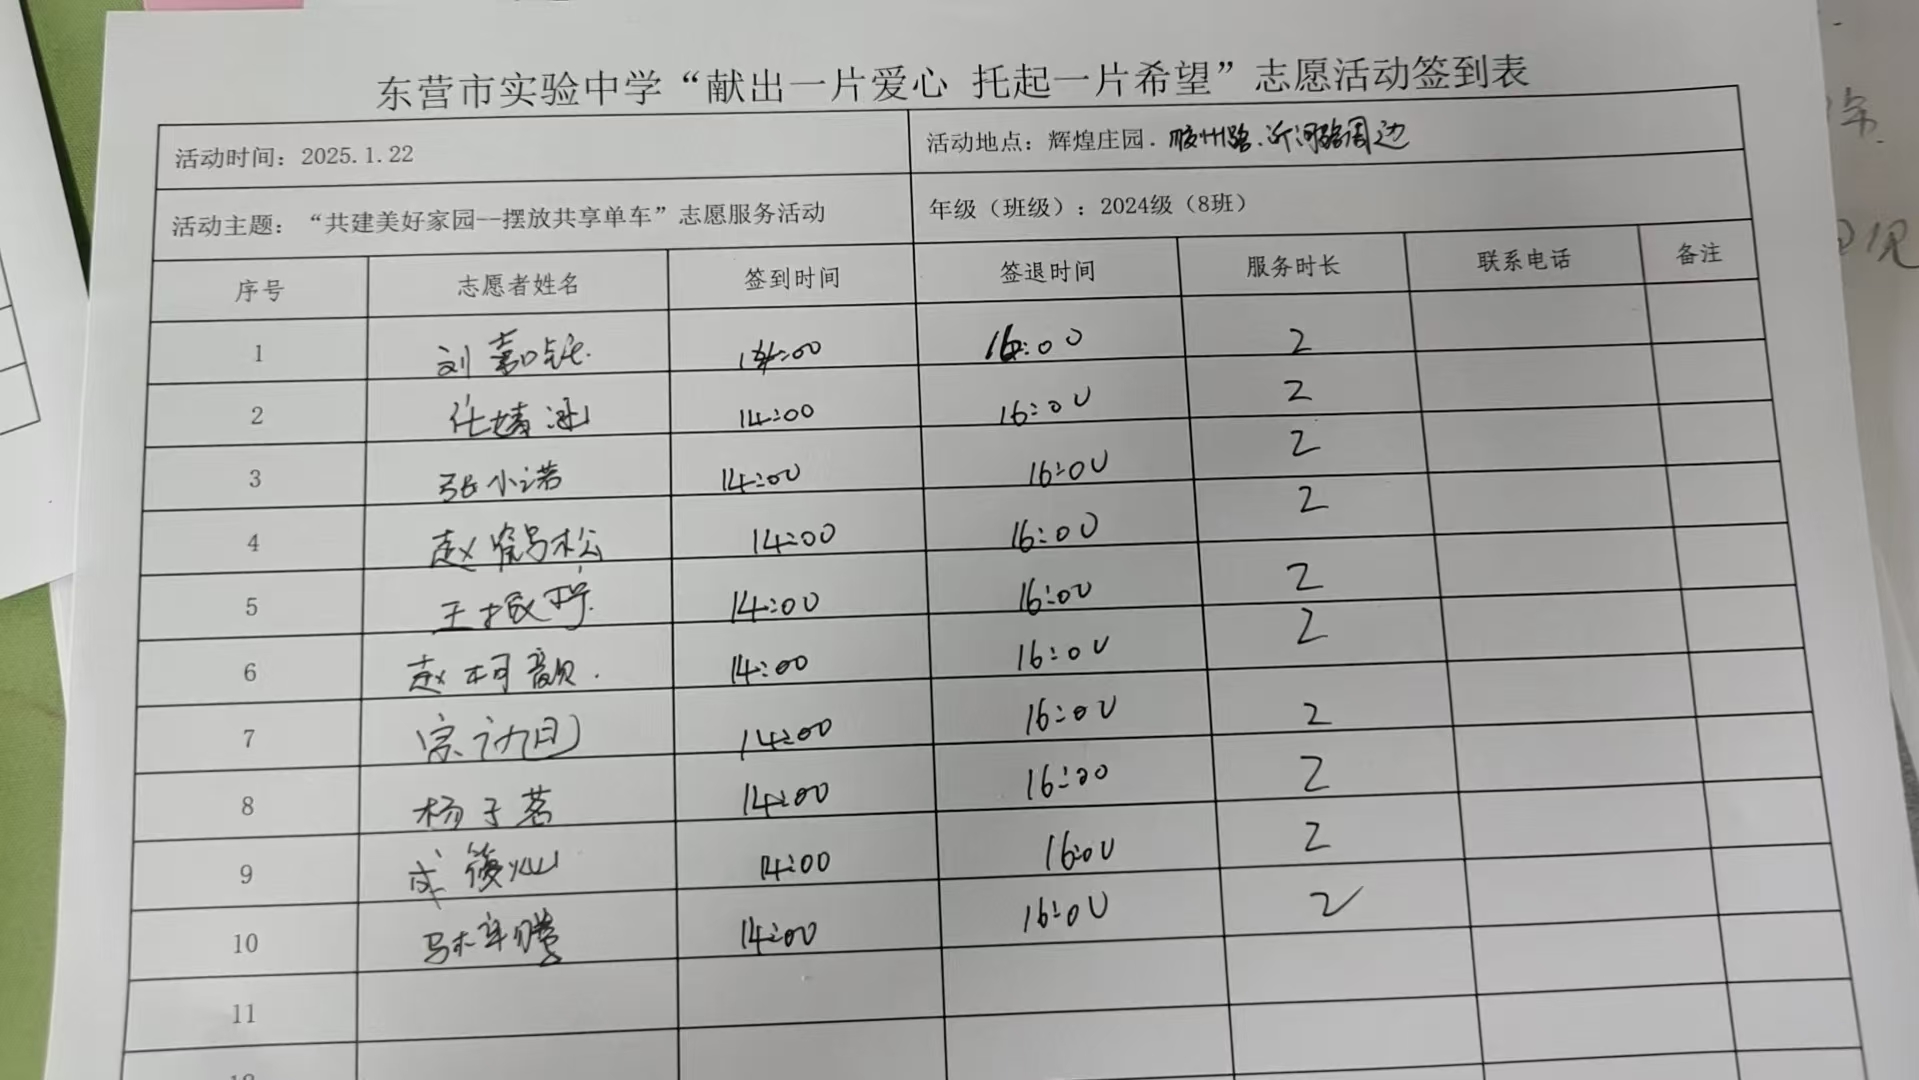 东营市实验中学“献出一片爱心 托起一片希望”志愿活动签到表
活动时间：2025.1.22 活动地点：辉煌庄园.胶州路.沂河路周边
活动主题：“共建美好家园--摆放共享单车”志愿服务活动 年级（班级）：2024级（8班）
序号 志愿者姓名 签到时间 签退时间 服务时长 联系电话 备注
1 刘嘉 14:00 16:00 2
2 任婧 14:00 16:00 2
3 张小诺 14:00 16:00 2
4 赵鹤松 14:00 16:00 2
5 王振 14:00 16:00 2
6 赵柯歆 14:00 16:00 2
7 宗 14:00 16:00 2
8 杨子茗 14:00 16:00 2
9 成筱灿 14:00 16:00 2
10 马梓腾 14:00 16:00 2
11